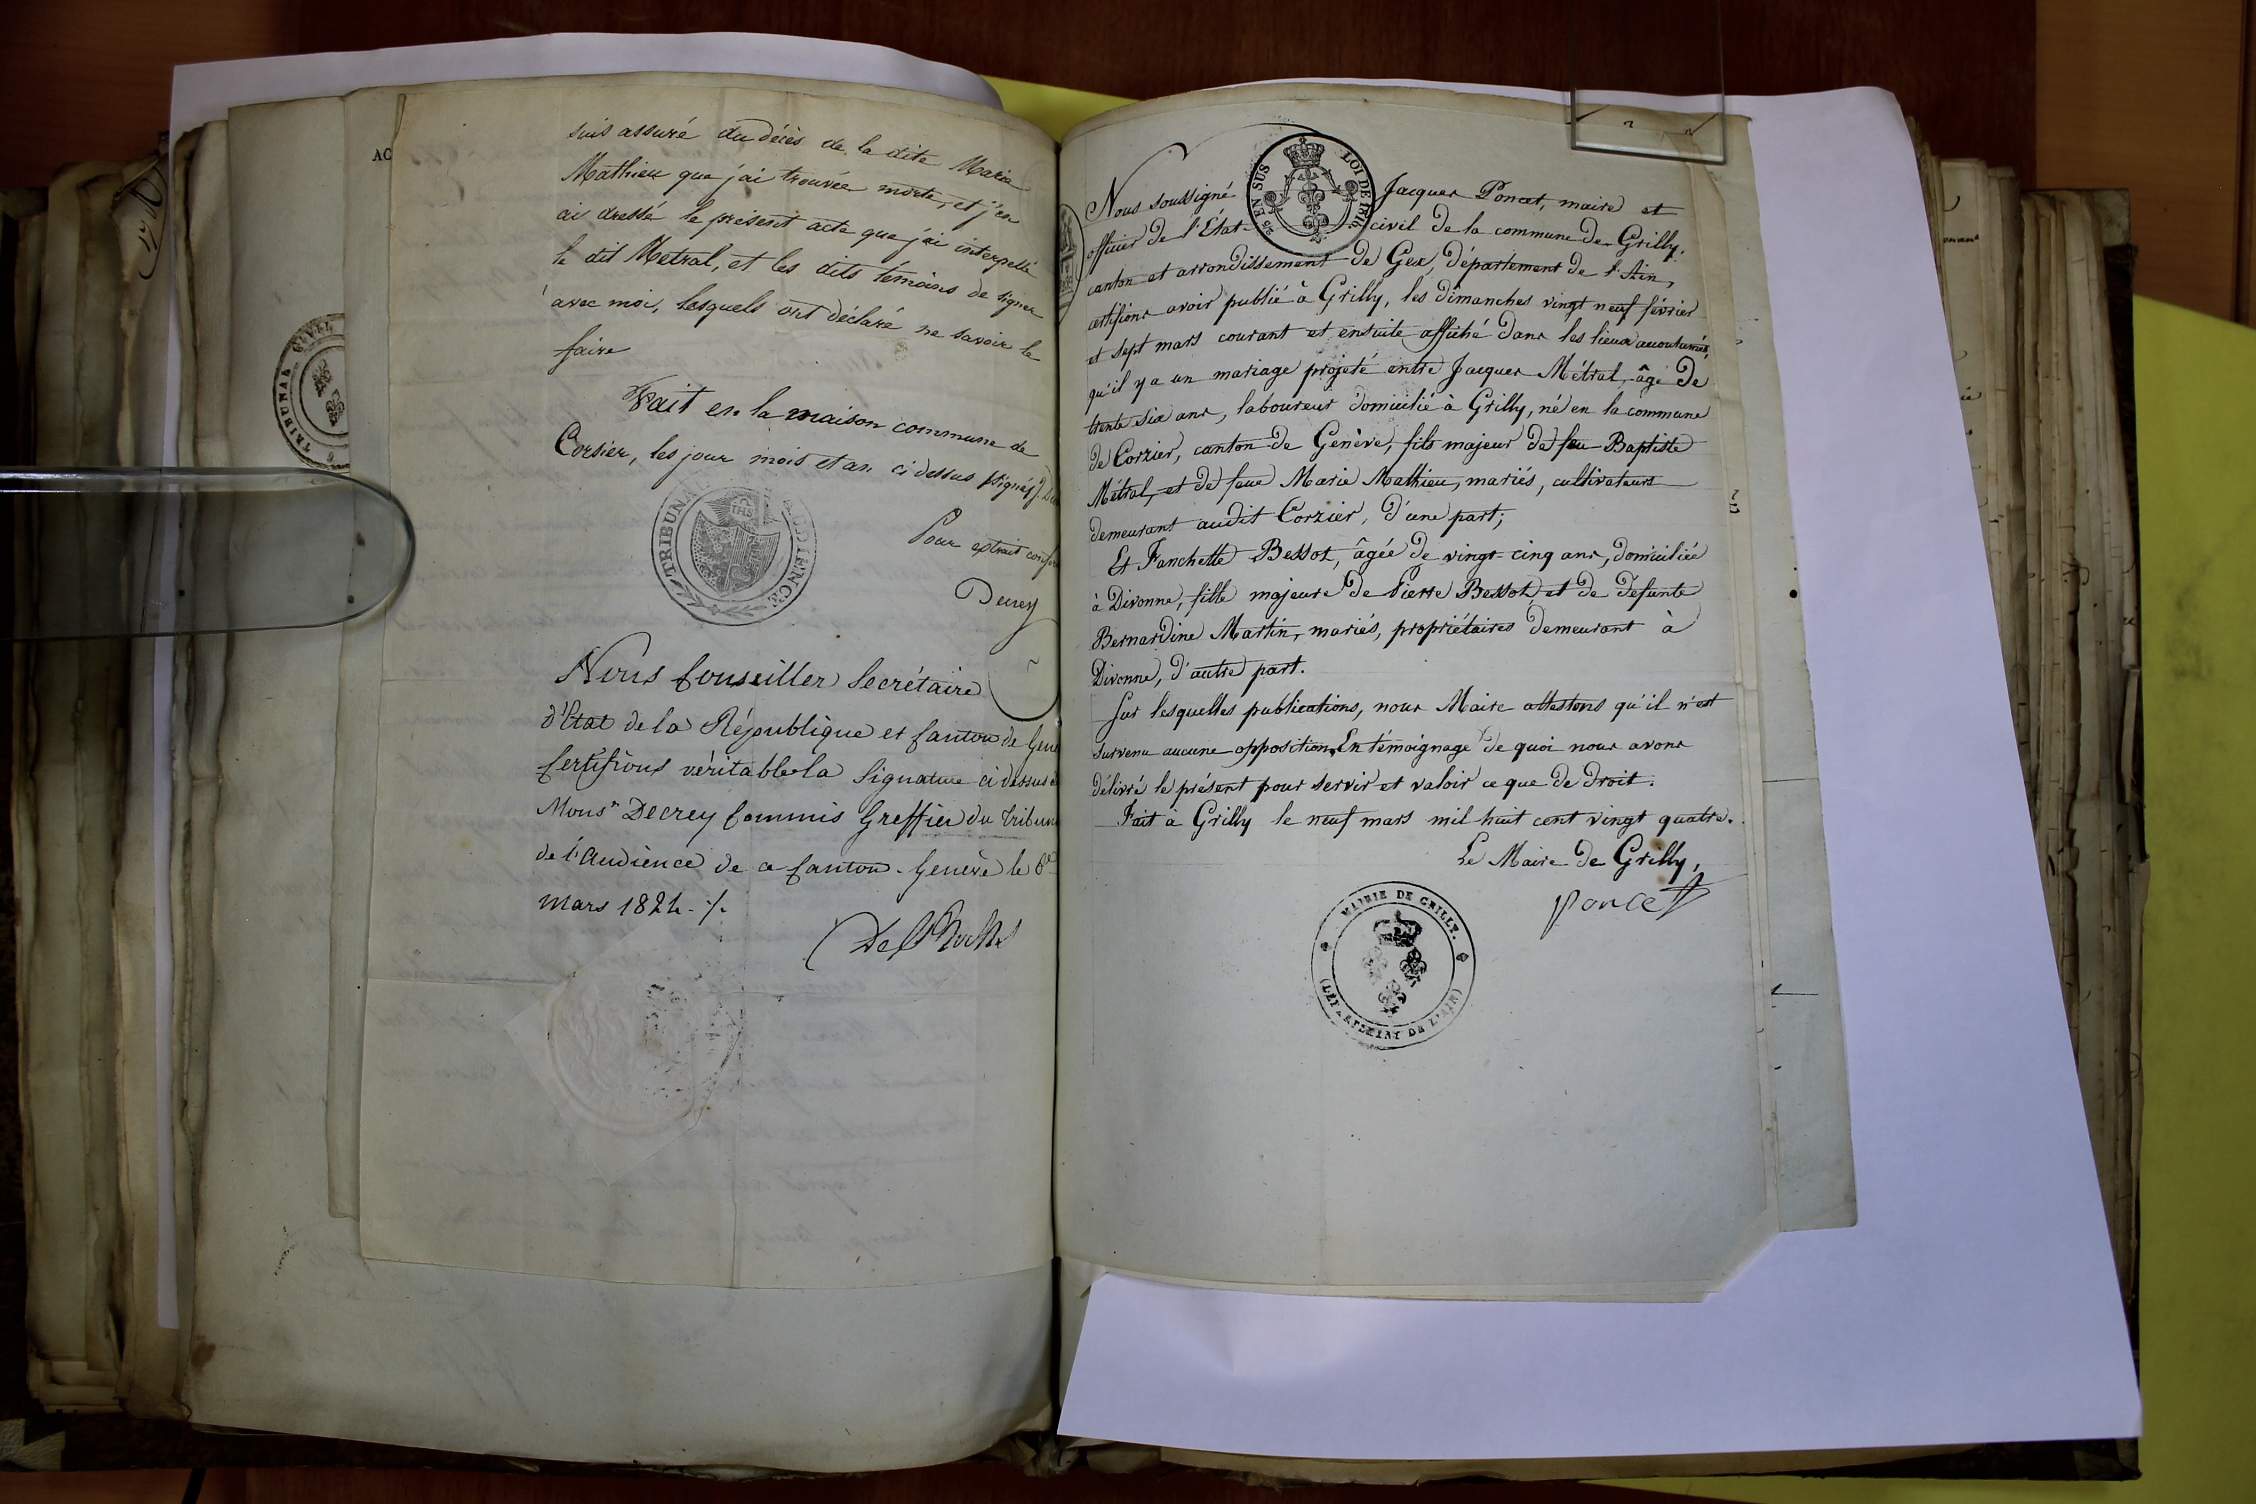 suis assuré du décès de la dite Marie
Mathieu que j'ai trouvée morte, et j'en
ai dressé le présent acte que j'ai interpellé
le dit Metral, et les dits témoins de signer
avec moi, lesquels ont déclaré ne savoir le
faire
Fait en la maison commune de
Corsier, les jour mois et an ci dessus signés
TRIBUNAL AUDIENCE
Pour extrait
Decrey
Nous Conseiller Secrétaire
d'Etat de la République et Canton de
Certifions véritable la Signature ci dessus
Monsr Decrey Commis Greffier du
de l'Audience de ce Canton. Genève le
mars 1824 ./.
AC
TRIBUNAL CIVIL
25 EN SUS LOI DE 1816
Nous soussigné Jacques Poncet, maire et
officier de l'État civil de la commune de Grilly,
canton et arrondissement de Gex, département de l'Ain,
certifions avoir publié à Grilly, les dimanches vingt neuf février
et sept mars courant et ensuite affiché dans les lieux accoutumés,
qu'il y a un mariage projeté entre Jacques Métral, âgé de
trente six ans, laboureur domicilié à Grilly, né en la commune
de Corzier, canton de Genève, fils majeur de feu Baptiste
Métral, et de feue Marie Mathieu, mariés, cultivateurs
demeurant audit Corzier, d'une part;
Et Fanchette Bessot, âgée de vingt cinq ans, domiciliée
à Divonne, fille majeure de Pierre Bessot, et de défunte
Bernardine Martin, mariés, propriétaires demeurant à
Divonne, d'autre part.
Sur lesquelles publications, nous Maire attestons qu'il n'est
survenu aucune opposition, En témoignage de quoi nous avons
délivré le présent pour servir et valoir ce que de droit.
Fait à Grilly le neuf mars mil huit cent vingt quatre.
Le Maire de Grilly,
Poncet
MAIRIE DE GRILLY.
(DEPARTEMENT DE L'AIN)